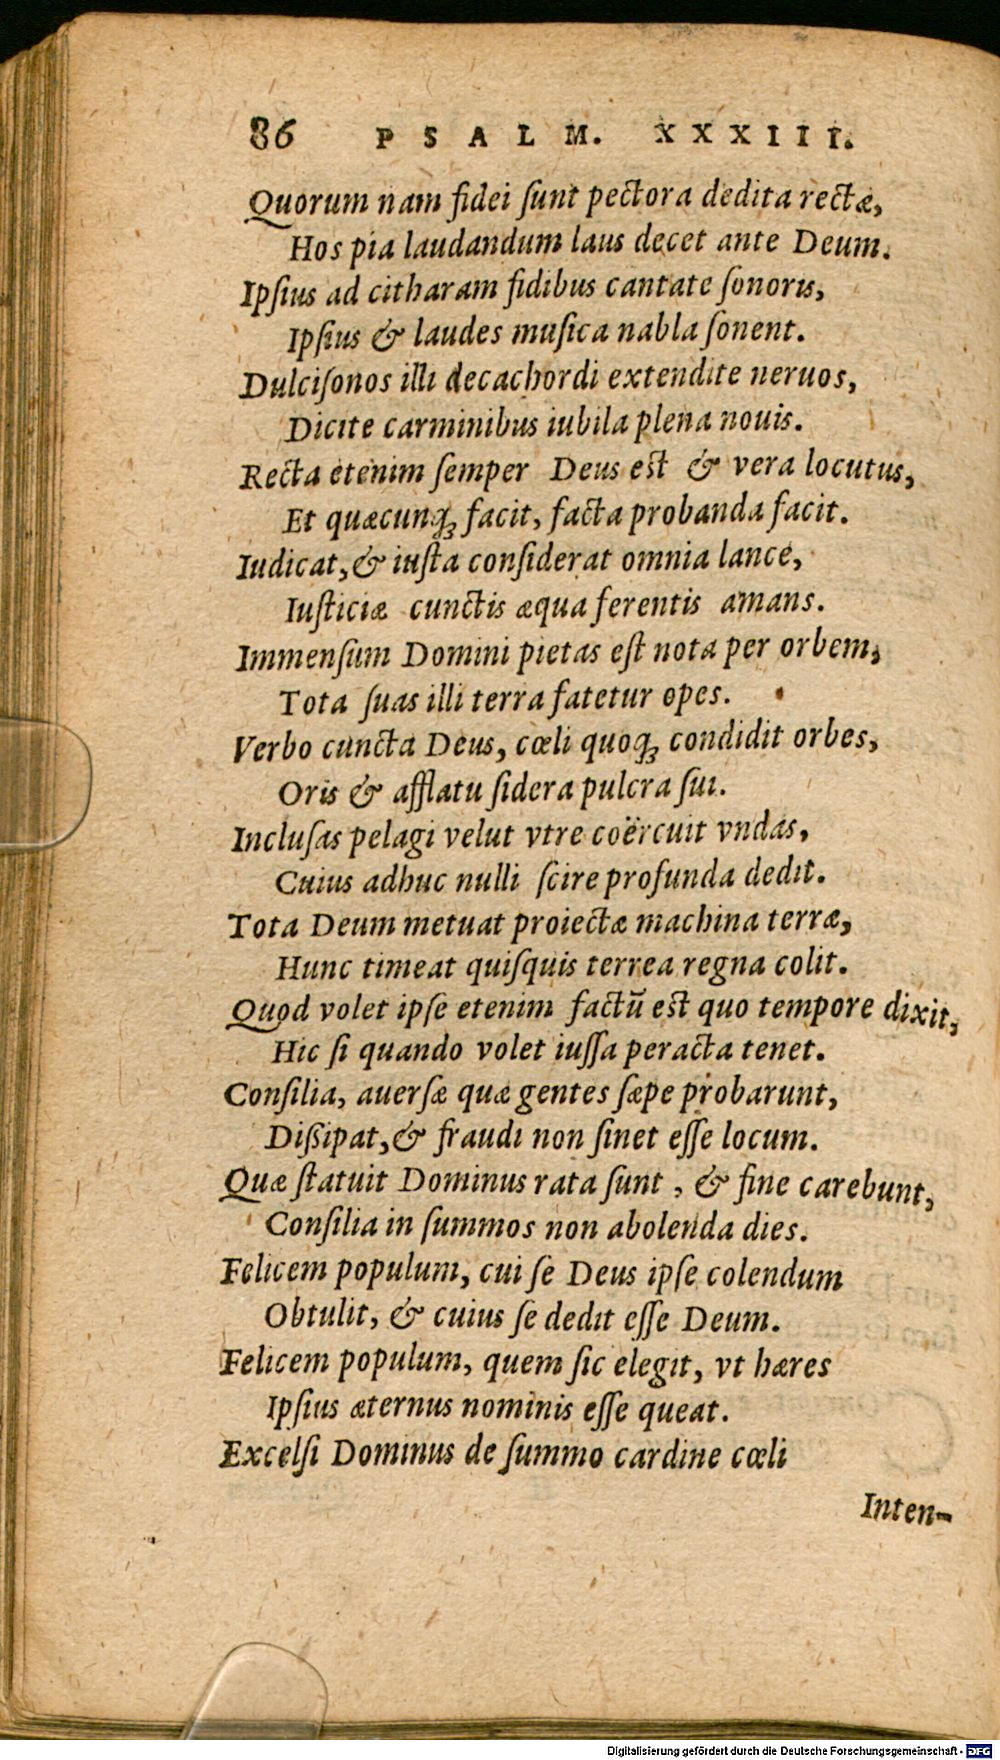 86 PSALM. XXXIII.
Quorum nam fidei ſunt pectora dedita rectæ,
Hos pia laudandum laus decet ante Deum.
Ipſius ad citharam fidibus cantate ſonoris,
Ipſius & laudes muſica nabla ſonent.
Dulciſonos illi decachordi extendite neruos,
Dicite carminibus iubila plena nouis.
Recta etenim ſemper Deus est & vera locutus,
Et quæcunq́ꝫ facit, facta probanda facit.
Iudicat, & iuſta conſiderat omnia lance,
Iuſticiæ cunctis æqua ferentis amans.
Immenſum Domini pietas eſt nota per orbem,
Tota ſuas illi terra fatetur opes.
Verbo cuncta Deus, cœli quoq́ꝫ condidit orbes,
Oris & afflatu ſidera pulcra ſui.
Incluſas pelagi velut vtre coërcuit vndas,
Cuius adhuc nulli ſcire profunda dedit.
Tota Deum metuat proiectæ machina terræ,
Hunc timeat quiſquis terrea regna colit.
Quod volet ipſe etenim factū est quo tempore dixit,
Hic ſi quando volet iuſſa peracta tenet.
Conſilia, auerſæ quæ gentes ſæpe probarunt,
Diſsipat, & fraudi non ſinet eſſe locum.
Quæ ſtatuit Dominus rata ſunt, & fine carebunt,
Conſilia in ſummos non abolenda dies.
Felicem populum, cui ſe Deus ipſe colendum
Obtulit, & cuius ſe dedit eſſe Deum.
Felicem populum, quem ſic elegit, vt hæres
Ipſius æternus nominis eſſe queat.
Excelſi Dominus de ſummo cardine cœli
Inten-
Digitalisierung gefördert durch die Deutsche Forschungsgemeinschaft - DFG